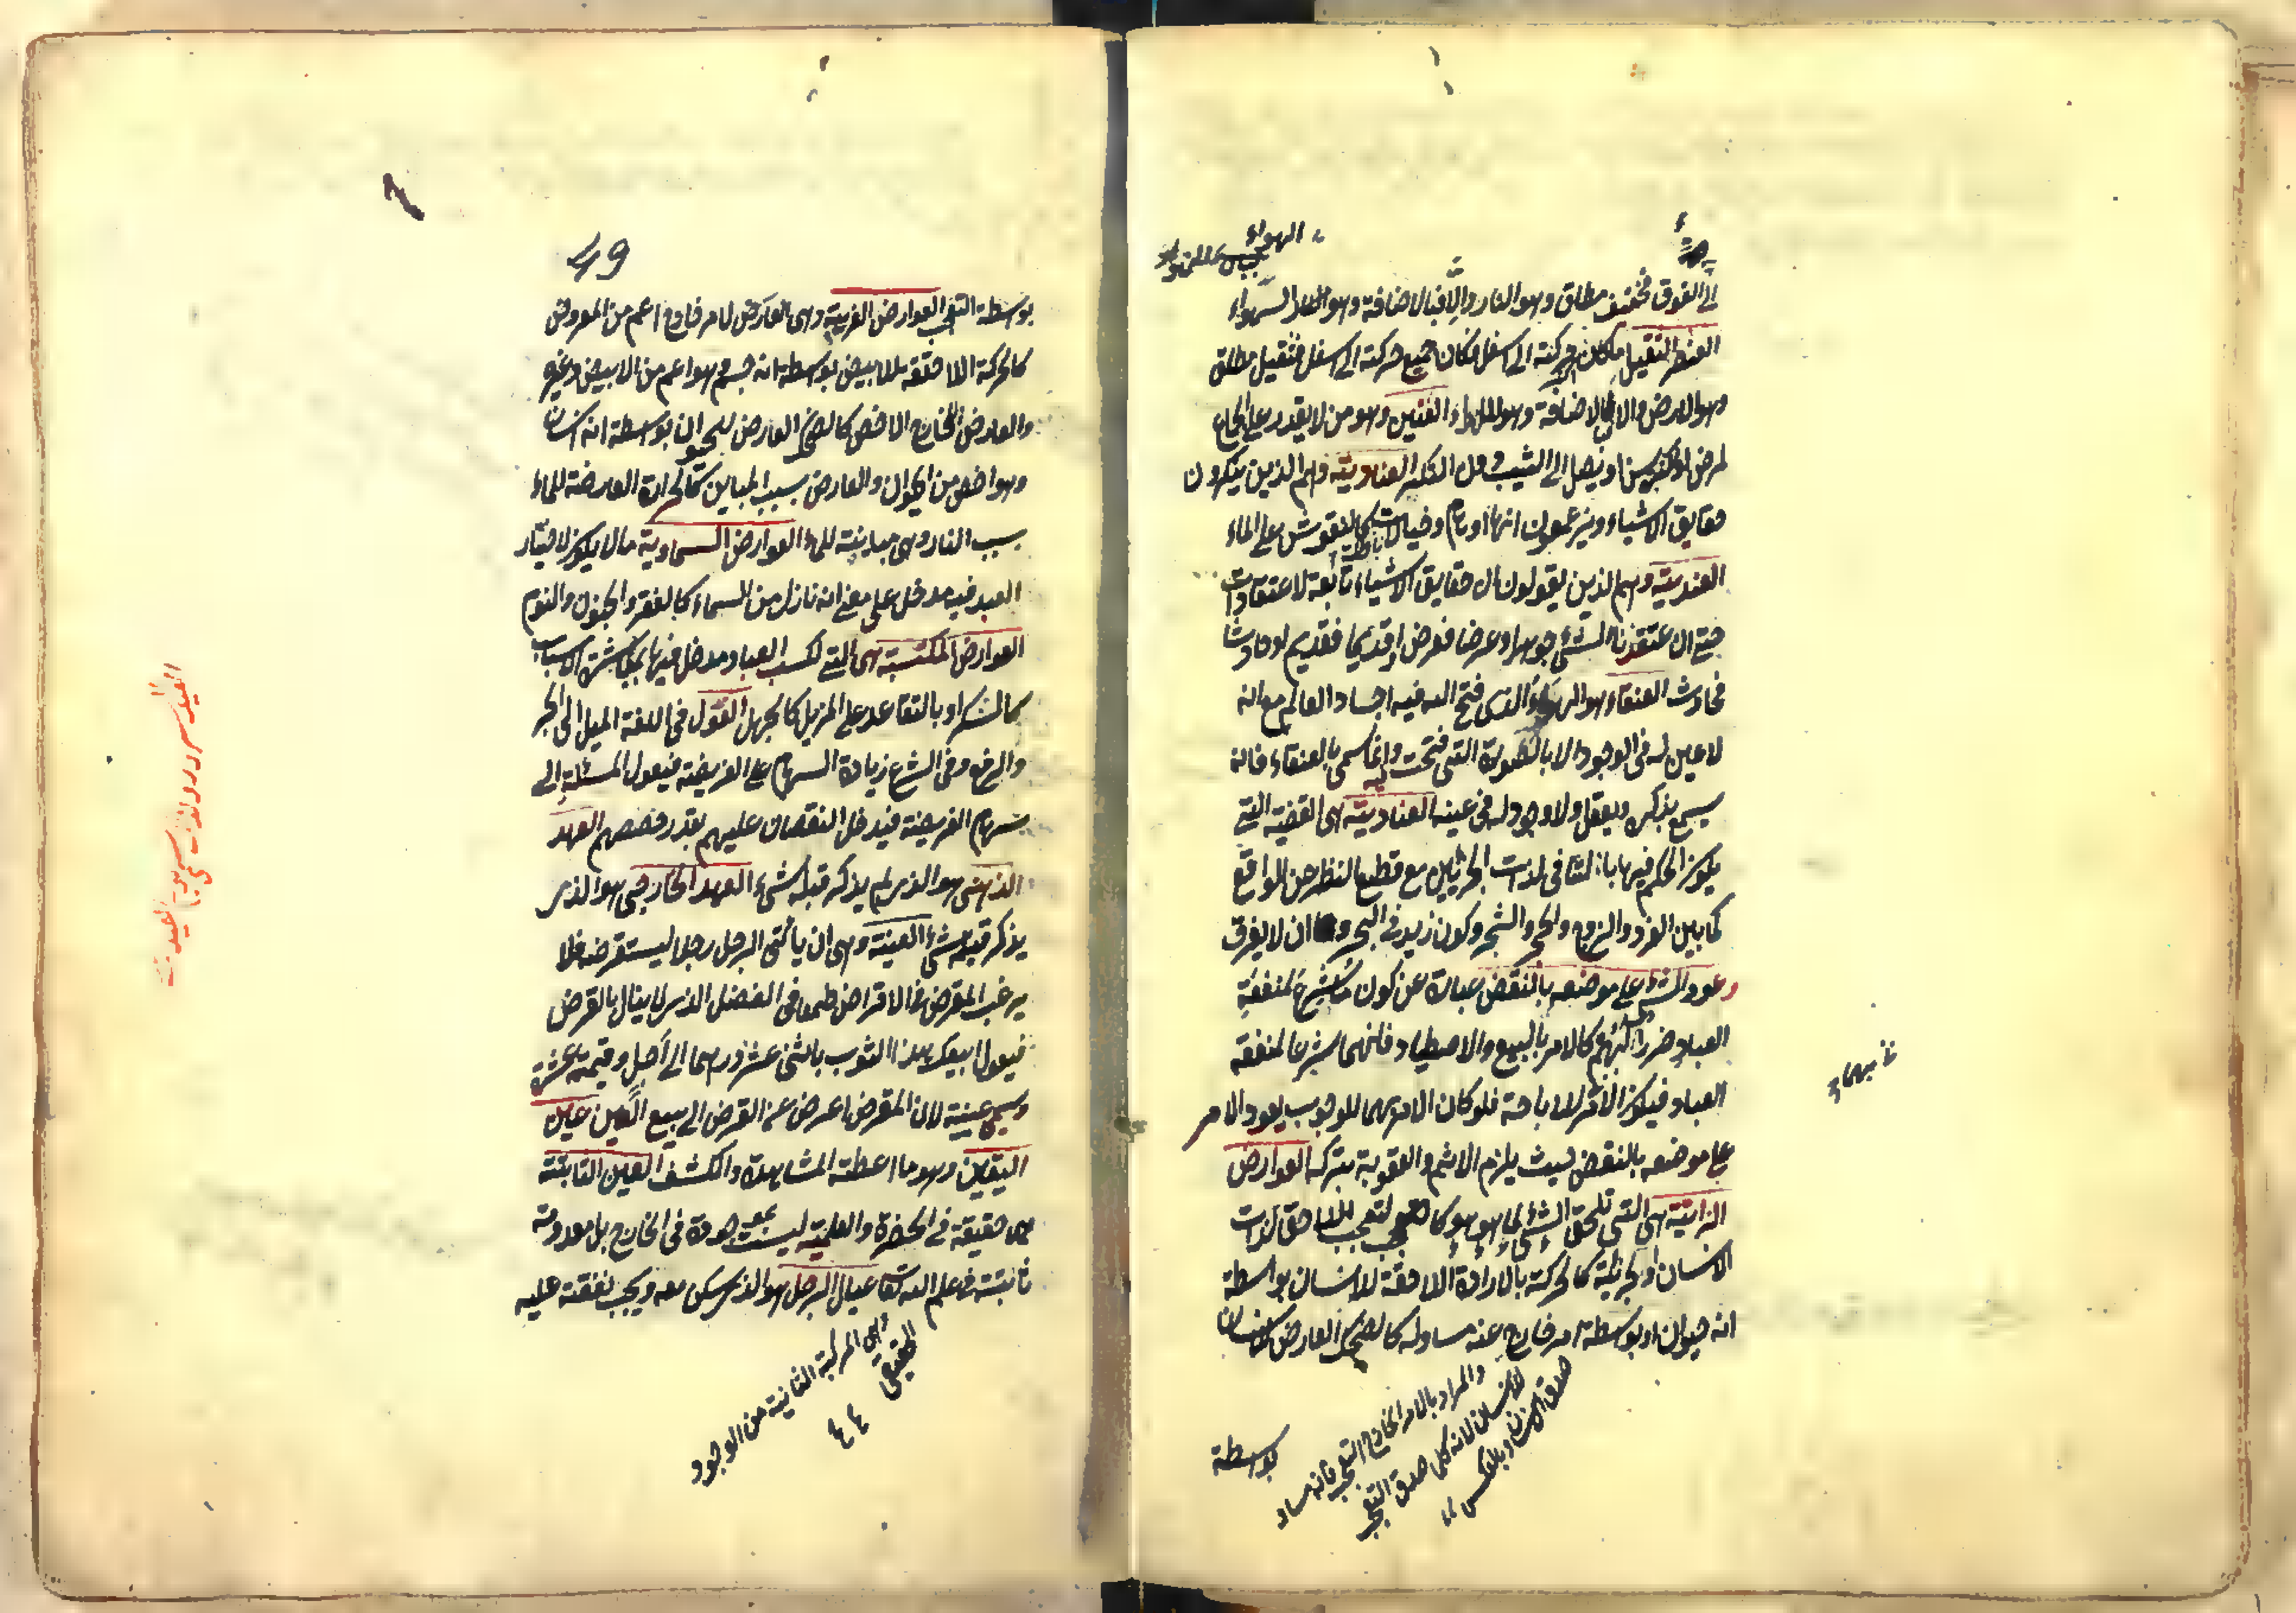 إلى الفوق فخفيف مطلق وهو النار والا فبالاضافة وهو الهواء
العنصر الثقيل ما كان حركته الى اسفل فان كان جميع حركته الى اسفل فثقيل مطلق
وهو الارض والا فبالاضافة وهو الماء العنين وهو من لا يقدر على الجماع
لمرض او كبر سن او يصل الى الثيب دون البكر العنادية وهم الذين ينكرون
حقايق الاشياء ويزعمون انها اوهام وخيالات كالنقوش على الماء
العندية وهم الذين يقولون ان حقايق الاشياء تابعة لاعتقادات
حتى ان اعتقدنا الشئ جوهرا او عرضا فعرض او قديما فقديم او حادثا
فحادث العنقاء هو الهباء الذى فتح الله فيه اجساد العالم مع انه
لا عين له فى الوجود الا بالصورة التى فتحت فيه وانما سمى بالعنقاء فانه
يسمع بذكره ويعقل ولا وجود له فى عينه العنادية هى القضية التى
يكون الحكم فيها بالتنافى لذات الجزئين مع قطع النظر عن الواقع
كما بين الفرد والزوج والحجر والشجر وكون زيد فى البحر وان لا يغرق
وعود الشئ على موضعه بالنقض عبارة عن كون ما شرع لمنفعة
العباد ضررا لهم كالامر بالبيع والاصطياد فانهما شرعا لمنفعة
العباد فيكون الامر للاباحة فلو كان الامر بهما للوجوب يعود الامر
على موضعه بالنقض حيث يلزم الاثم والعقوبة بتركه العوارض
الذاتية هى التى تلحق الشئ لما هو هو كالتعجب اللاحق لذات
الانسان او لجزئه كالحركة بالارادة اللاحقة للانسان بواسطة
انه حيوان او بواسطة امر خارج عنه مساو له كالضحك العارض للانسان
والمراد بالامر الخارج التعجب فانه مساو
للانسان لانه كل صدق التعجب
صدق الانسان وبالعكس
بواسطة
49
بواسطة التعجب العوارض الغريبة وهى العارض لامر خارج اعم من المعروض
كالحركة اللاحقة للابيض بواسطة انه جسم وهو اعم من الابيض وغيره
والعارض للخارج الاخص كالضحك العارض للحيوان بواسطة انه انسان
وهو اخص من الحيوان والعارض بسبب المباين كالحرارة العارضة للماء
بسبب النار وهى مباينة للماء العوارض السماوية ما لا يكون لاختيار
العبد فيه مدخل على معنى انه نازل من السماء كالفقر والجنون والنوم
العوارض المكتسبة هى التى لكسب العباد مدخل فيها بمباشرة الاسباب
كالسكر او بالتقاعد على المزيل كالجهل العول فى اللغة الميل الى الجور
والرفع وفى الشرع زيادة السهام على الفريضة فيعول المسئلة الى
سهام الفريضة فيدخل النقصان عليهم بقدر حصصهم العهد
الذهنى هو الذى لم يذكر قبله شئ العهد الخارجى هو الذى
يذكر قبله شئ العينة وهى ان يأتى الرجل رجلا ليستقرضه فلا
يرغب المقرض فى الاقراض طمعا فى الفضل الذى لا ينال بالقرض
فيقول ابيعك هذا الثوب باثنى عشر درهما الى أجل وقيمته عشرة
ويسمى عينة لان المقرض اعرض عن القرض الى بيع العين عين
اليقين وهو ما اعطته المشاهدة والكشف العين الثابتة
هى حقيقة فى الحضرة والعلمية ليست بموجودة فى الخارج بل معدومة
ثابتة فى علم الله تعا عيال الرجل هو الذى يسكن معه ويجب نفقته عليه
المرتبة الثانية من الوجود
الحقيقى
٤٤